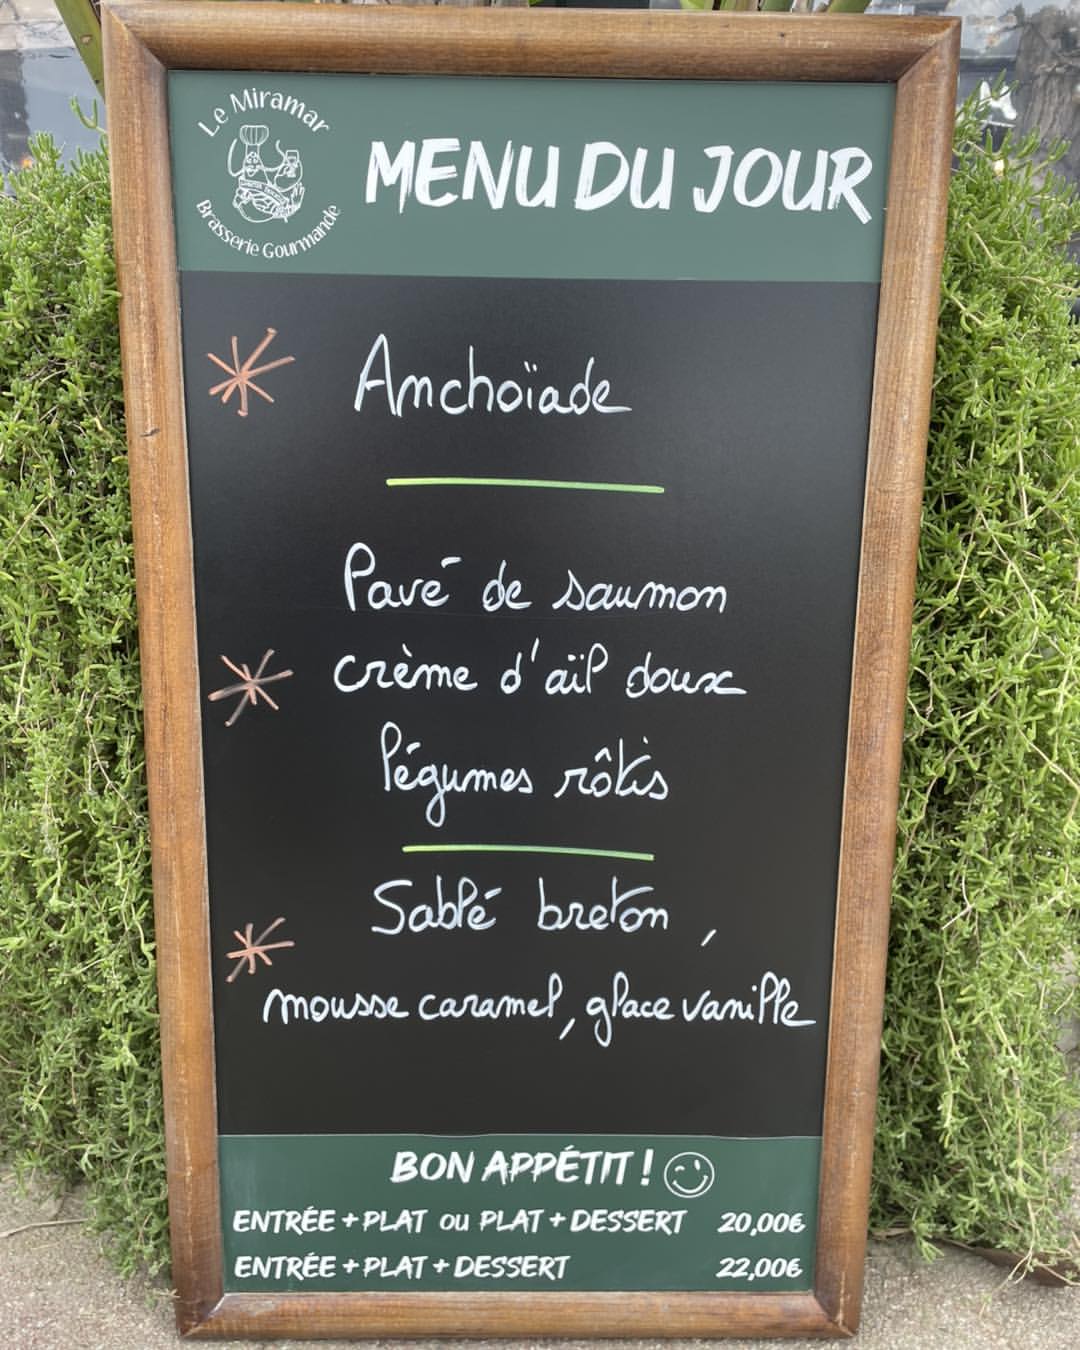 Le Miramar
Brasserie Gourmande
MENU DU JOUR
Anchoïade
Pavé de saumon
crème d'aïl doux
légumes rôtis
Sablé breton,
mousse caramel, glace vanille
BON APPÉTIT !
ENTRÉE + PLAT ou PLAT + DESSERT 20,00€
ENTRÉE + PLAT + DESSERT 22,00€